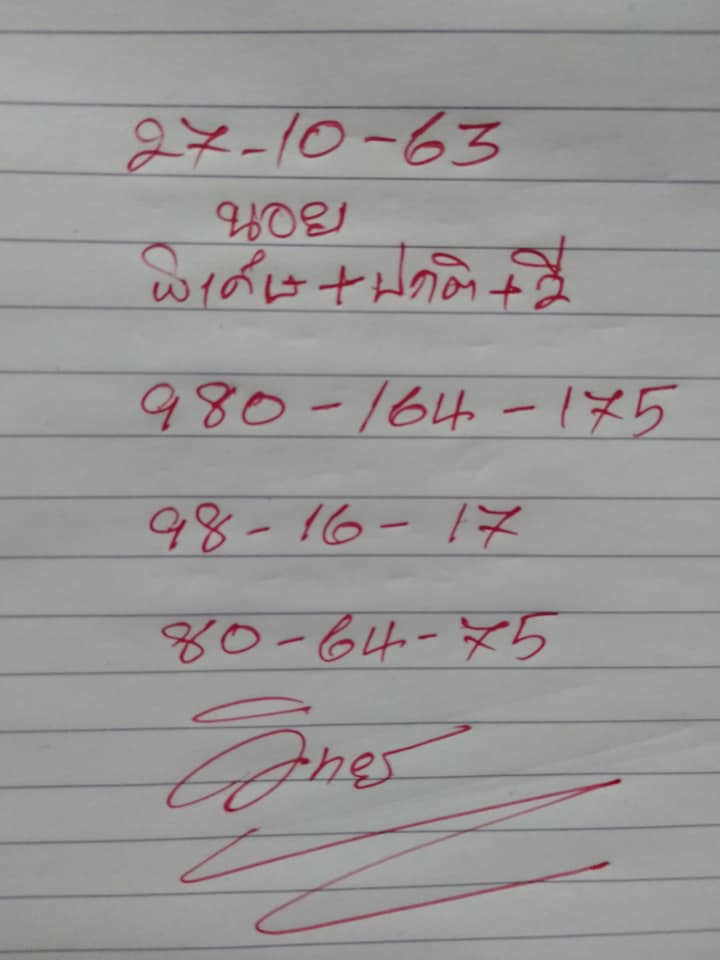 27-10-63
นอย
พิเศษ+ปกติ+วี
980-164-175
98-16-17
80-64-75